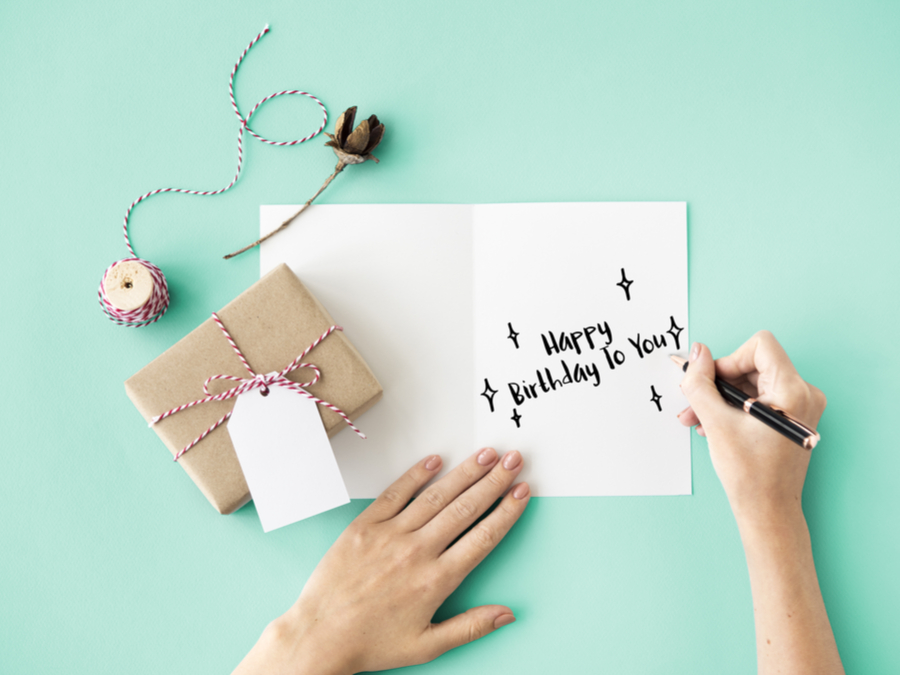 Happy
Birthday To You